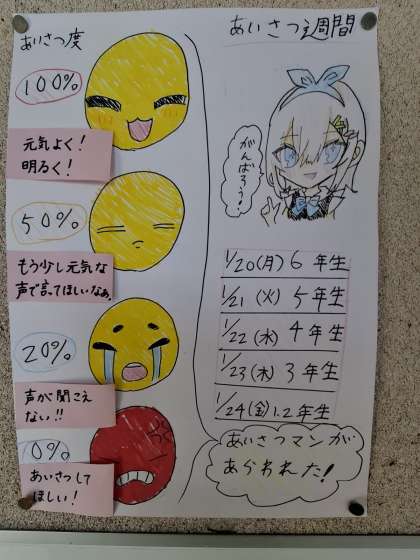 あいさつ度
100%
元気よく！
明るく！
50%
もう少し元気な
声で言てほしいなぁ。
20%
声が聞こえ
ない!!
0%
あいさつして
ほしい！
あいさつ週間
がんばろう！
1/20(月) 6年生
1/21(火) 5年生
1/22(水) 4年生
1/23(木) 3年生
1/24(金) 1.2年生
あいさつマンが
あらわれた！